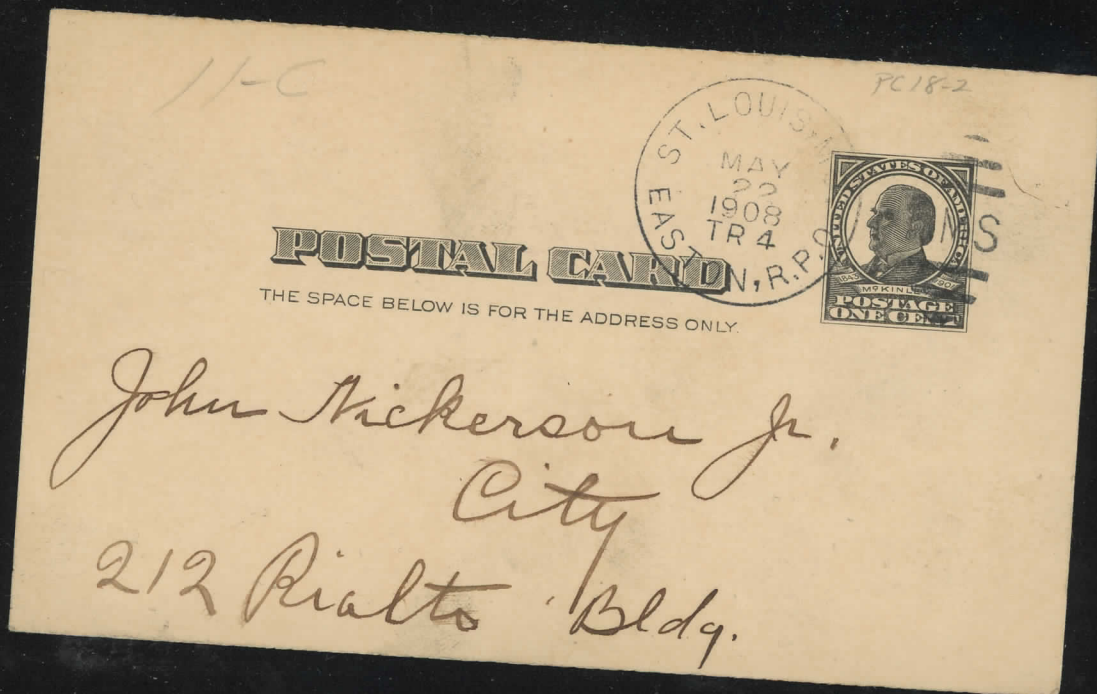 11-C
PC18-2
ST. LOUIS,
MAY
22
1908
TR 4
EASTON, R.P.O.
S
UNITED STATES OF AMERICA
McKINLEY
POSTAGE
ONE CENT
POSTAL CARD
THE SPACE BELOW IS FOR THE ADDRESS ONLY.
John Nickerson Jr.
City
212 Rialto Bldg.